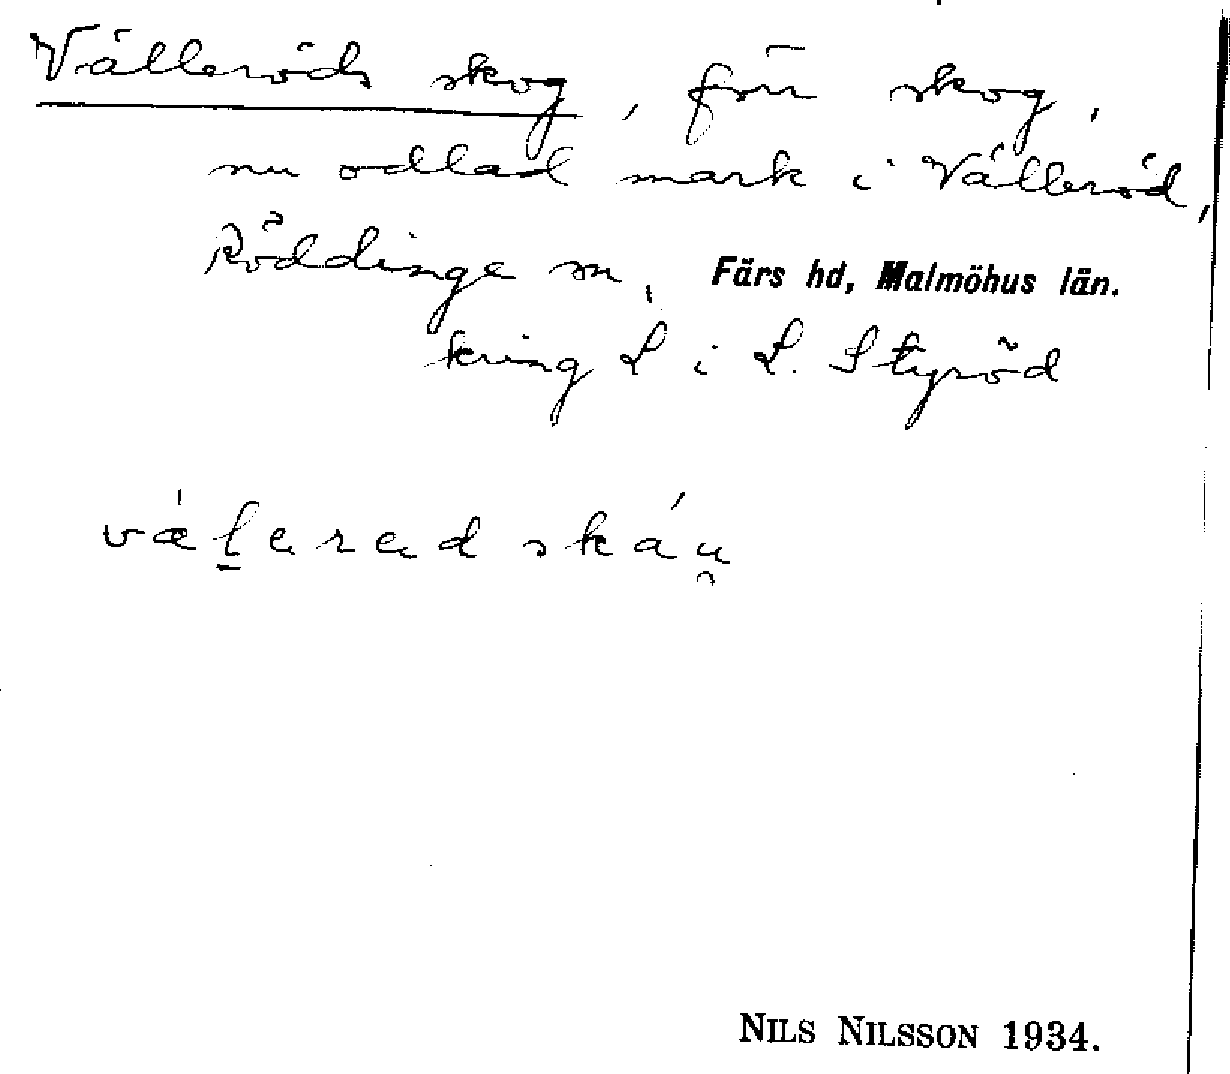 Välleröds skog, förr skog,
nu odlad mark i Välleröd,
Röddinge sn, Färs hd, Malmöhus län.
kring L i L. Styröd
væ̍l̠ered skáu̯
NILS NILSSON 1934.